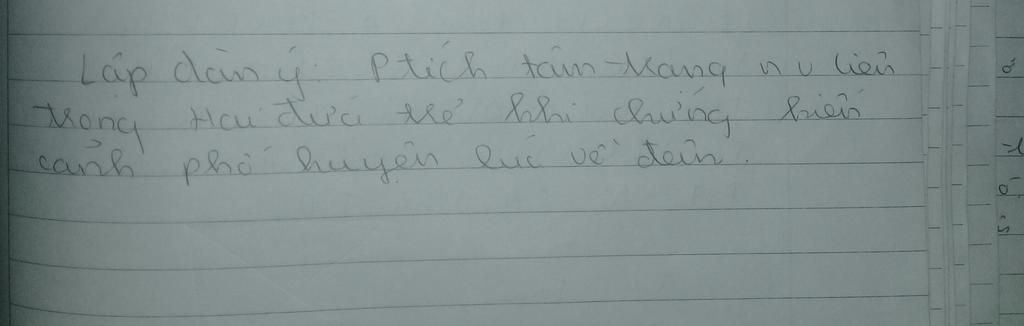 Lập dàn ý: Ptích tâm trạng nv Liên
trong Hai đứa trẻ khi chứng kiến
cảnh phố huyện lúc về đêm.